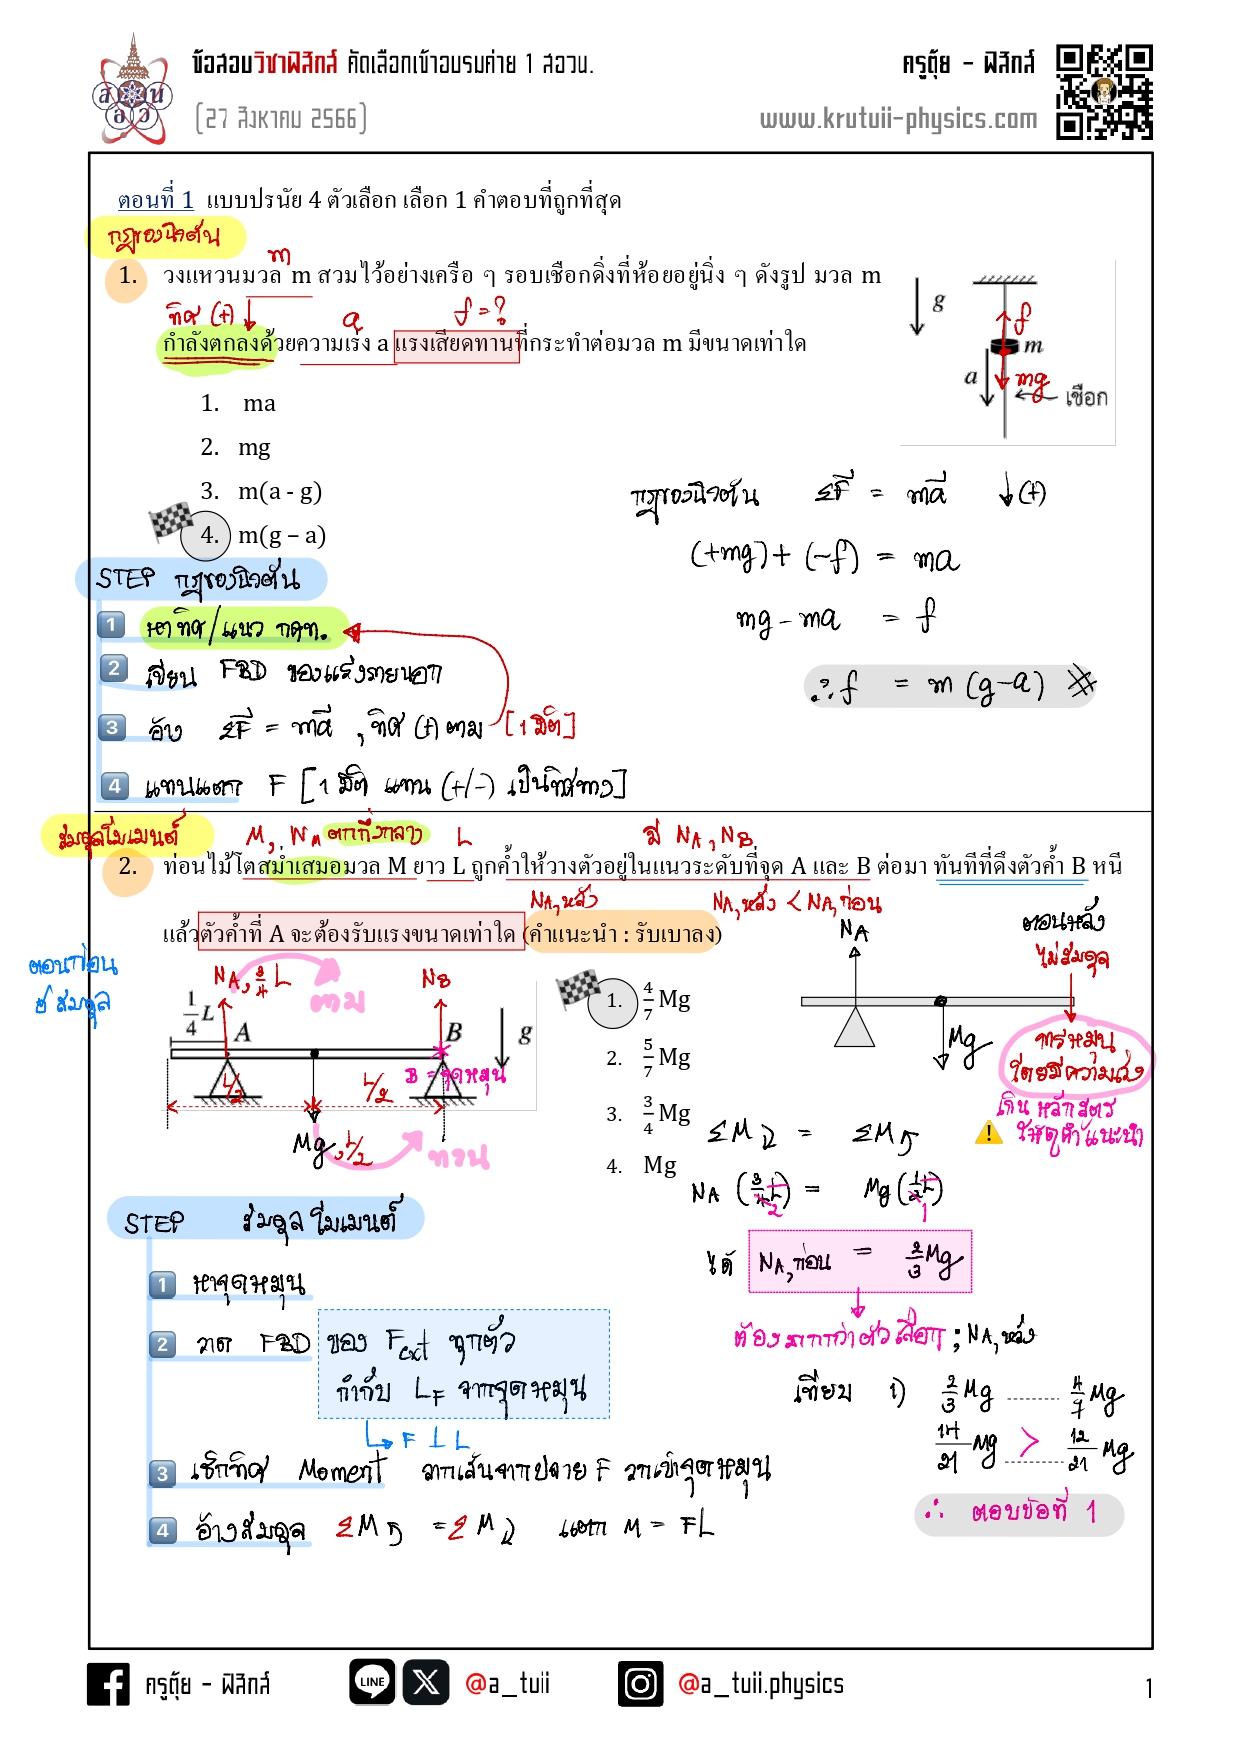 ข้อสอบวิชาฟิสิกส์ คัดเลือกเข้าอบรมค่าย 1 สอวน.
ครูตุ้ย - ฟิสิกส์
(27 สิงหาคม 2566)
www.krutuii-physics.com
ส อ ว น
ตอนที่ 1 แบบปรนัย 4 ตัวเลือก เลือก 1 คำตอบที่ถูกที่สุด
กฎของนิวตัน
m
1. วงแหวนมวล m สวมไว้อย่างเครือ ๆ รอบเชือกดิ่งที่ห้อยอยู่นิ่ง ๆ ดังรูป มวล m
ทิศ (+) a f = ?
กำลังตกลงด้วยความเร่ง a แรงเสียดทานที่กระทำต่อมวล m มีขนาดเท่าใด
g
f
m
a
mg
เชือก
1. ma
2. mg
3. m(a - g)
4. m(g – a)
กฎของนิวตัน ΣF = ma (+)
(+mg) + (-f) = ma
mg - ma = f
∴ f = m (g-a)
STEP กฎของนิวตัน
1 หาทิศ/แนว กคท.
2 เขียน FBD ของแรงภายนอก
3 อ้าง ΣF = ma , ทิศ (+) ตาม [1 มิติ]
4 แทนแตก F [1 มิติ แทน (+/-) เป็นทิศทาง]
สมดุลโมเมนต์
M, W ตกกึ่งกลาง L มี NA, NB
2. ท่อนไม้โตสม่ำเสมอมวล M ยาว L ถูกค้ำให้วางตัวอยู่ในแนวระดับที่จุด A และ B ต่อมา ทันทีที่ดึงตัวค้ำ B หนี
NA,หลัง NA,หลัง < NA,ก่อน
แล้วตัวค้ำที่ A จะต้องรับแรงขนาดเท่าใด (คำแนะนำ : รับเบาลง)
ตอนก่อน
สมดุล
NA, 3/4 L
ตาม
NB
1/4 L
A
B
g
B = จุดหมุน
L/2
L/2
Mg, L/2
ทวน
1. 4/7 Mg
2. 5/7 Mg
3. 3/4 Mg
4. Mg
NA
ตอนหลัง
ไม่สมดุล
Mg
การหมุน
โดยมีความเร่ง
เกินหลักสูตร
ให้ดูคำแนะนำ
ΣM = ΣM
NA (3/4 L) = Mg (1/2 L)
2 1
ได้ NA,ก่อน = 2/3 Mg
ต้องมากกว่าตัวเลือก ; NA,หลัง
เทียบ 1) 2/3 Mg ........ 4/7 Mg
14/21 Mg > 12/21 Mg
∴ ตอบข้อที่ 1
STEP สมดุลโมเมนต์
1 หาจุดหมุน
2 วาด FBD ของ Fext ทุกตัว
กำกับ LF จากจุดหมุน
F ⊥ L
3 เช็กทิศ Moment ลากเส้นจากปลาย F ลากเข้าจุดหมุน
4 อ้างสมดุล ΣM = ΣM แตก M = FL
ครูตุ้ย - ฟิสิกส์
LINE
@a_tuii
@a_tuii.physics
1